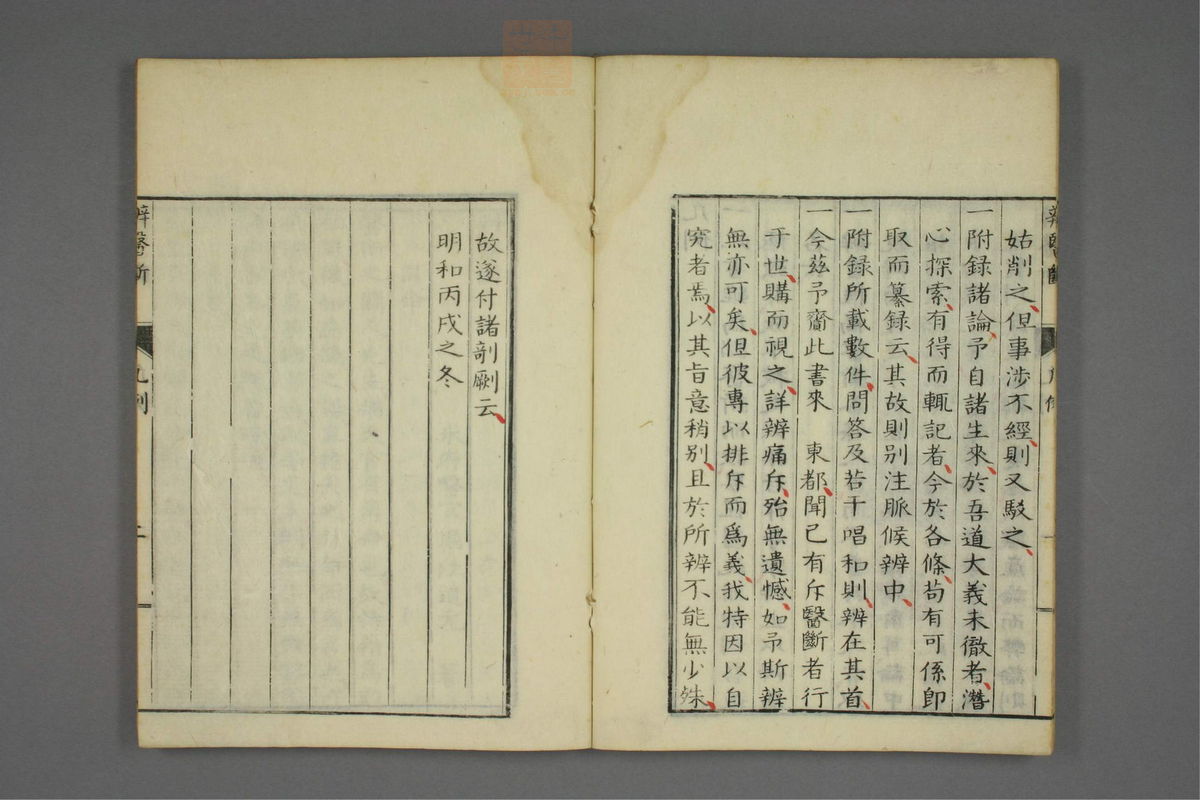 姑削之但事涉不經則又駁之
一附錄諸論予自諸生來於吾道大義未徹者潛
心探索有得而輒記者今於各條苟有可係即
取而纂録云其故則別注脈候辨中
一附録所載數件問答及若干唱和則辨在其首
一今茲予齎此書來　東都聞已有斥醫斷者行
于世購而視之詳辨痛斥殆無遺憾如予斯辨
無亦可矣但彼專以排斥而爲義我特因以自
究者焉以其旨意稍別且於所辨不能無少殊
故遂付諸剞劂云
明和丙戌之冬
辨醫斷
凡例
二